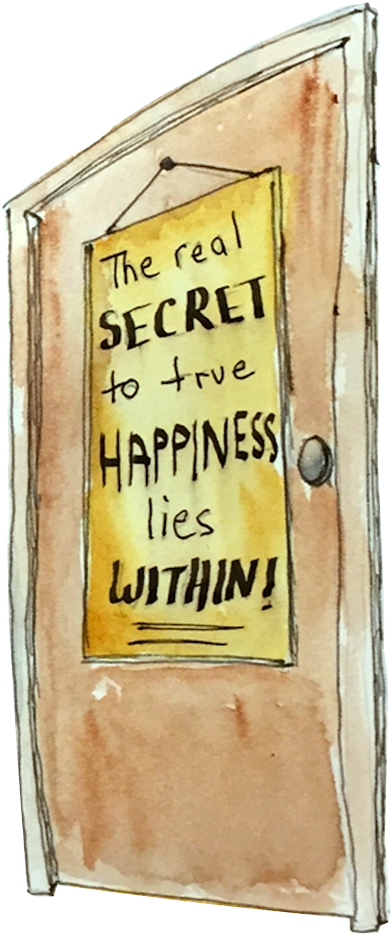 The real
SECRET
to true
HAPPINESS
lies
WITHIN!